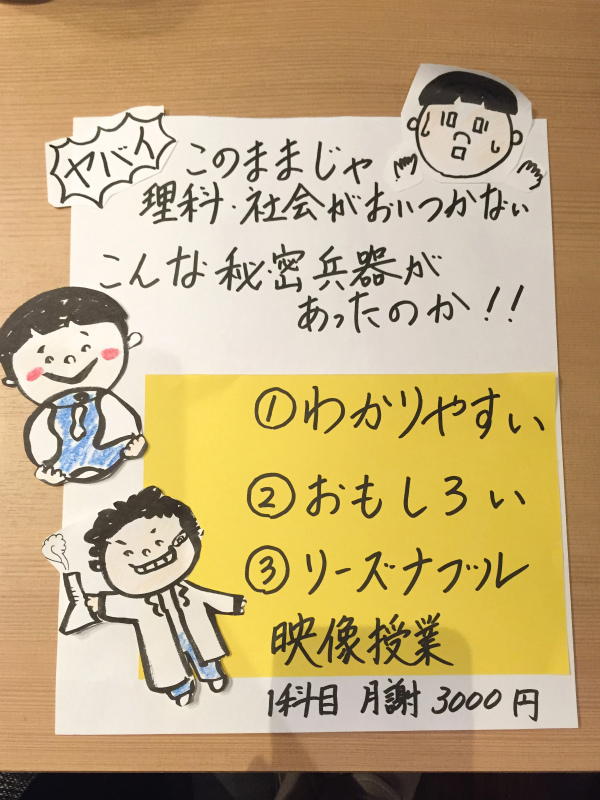 ヤバイ
このままじゃ
理科・社会がおいつかない
こんな秘密兵器が
あったのか!!
①わかりやすい
②おもしろい
③リーズナブル
映像授業
1科目 月謝 3000円